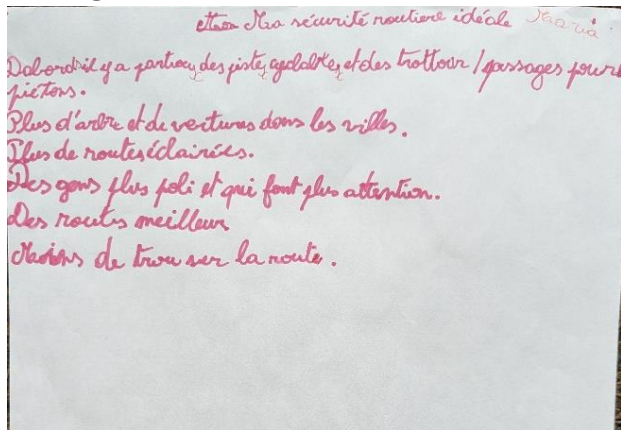 Ma sécurité routière idéale Maria
Dabord il y a partout des piste cyclables et des trottoir / passages pour
piétons.
Plus d'arbre et de verture dans les villes.
Plus de routes éclairées.
Des gens plus poli et qui font plus attention.
Des routes meilleurs
Moins de trou sur la route.